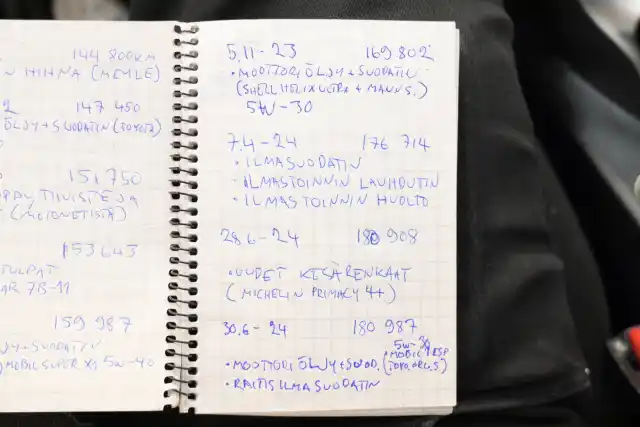 144 800km
HIHNA (MEYLE)
147 450
ÖLJY + SUODATIN (TOYOTA)
151 750
TIIVISTE JA
(MOTONETISTÄ)
153 643
TULPAT
AR 7B-11
159 987
SUODATIN
MOBIL SUPER X1 5W-40
5.11 - 23 169 802
• MOOTTORIÖLJY + SUODATIN
(SHELL HELIX ULTRA + MANN S.)
5W - 30
7.4 - 24 176 714
• ILMASUODATIN
- ILMASTOINNIN LAUHDUTIN
• ILMASTOINNIN HUOLTO
28.6 - 24 180 908
• UUDET KESÄRENKAAT
(MICHELIN PRIMACY 4+)
30.6 - 24 180 987
5W-30
• MOBIL 1 ESP
• MOOTTORIÖLJY + SUOD.
• RAITISILMASUODATIN